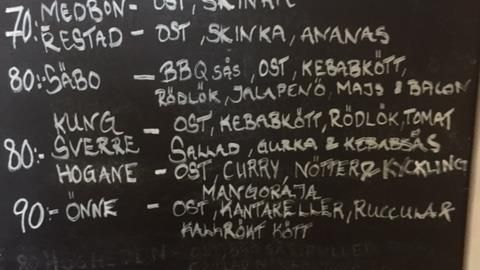 70:- MEDBON - OST, SKINK
RESTAD - OST, SKINKA, ANANAS
80:- SÄBO - BBQ SÅS, OST, KEBABKÖTT,
RÖDLÖK, JALAPENÕ, MAJS & BACON
KUNG - OST, KEBABKÖTT, RÖDLÖK, TOMAT
80:- SVERRE SALLAD, GURKA & KEBABSÅS
HOGANE - OST, CURRY, NÖTTER & KYCKLING
MANGORAJA
90- ÖNNE - OST, KANTARELLER, RUCCULA &
KALLRÖKT KÖTT